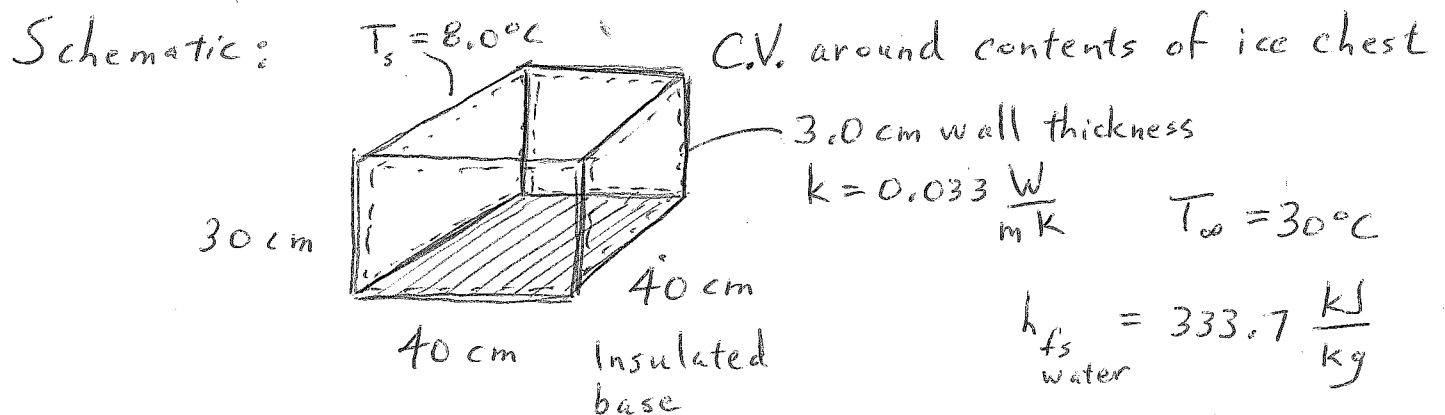 Schematic: T_s = 8.0°C C.V. around contents of ice chest
3.0 cm wall thickness
k = 0.033 W/mK T_∞ = 30°C
30 cm
40 cm
40 cm Insulated base
h_fs water = 333.7 kJ/kg